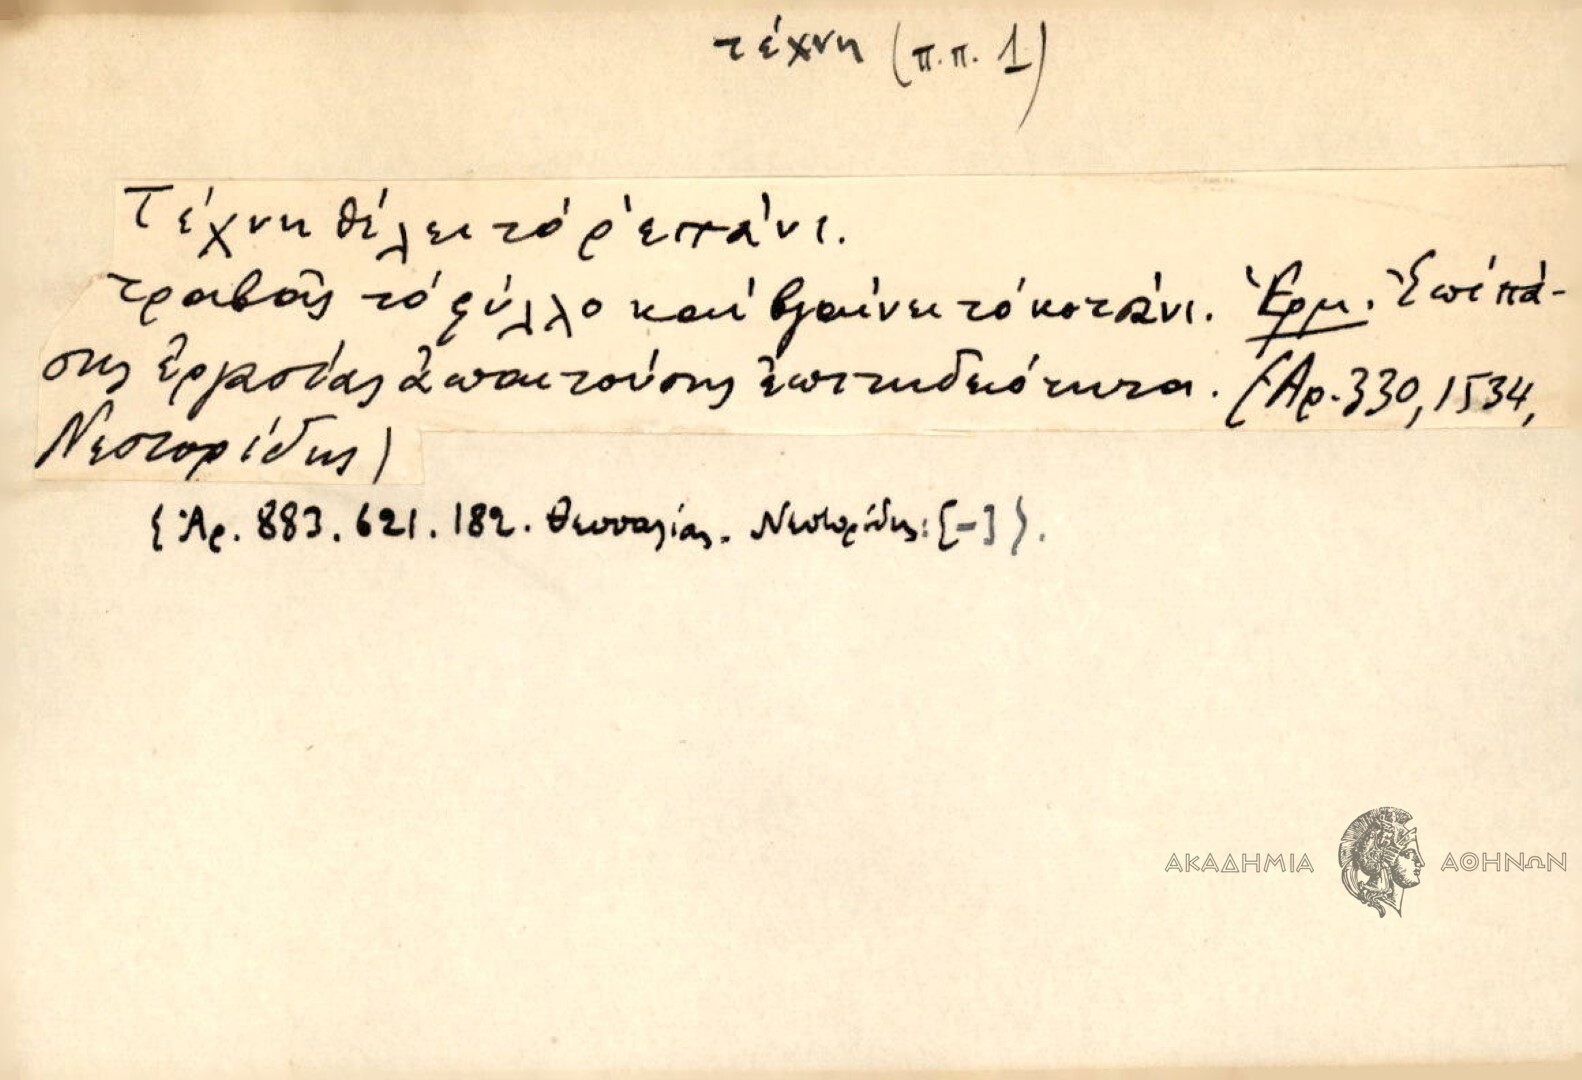 τέχνη (π.π. 1)
Τέχνη θέλει τό ρ'επάνι.
τραβᾶς τό φύλλο καί βγαίνει τό κοτσάνι. Ἑρμ. Ἐπί πά-
σης ἐργασίας ἀπαιτούσης ἐπιτηδειότητα. (Ἀρ. 330, 1534,
Νεστορίδης)
(Ἀρ. 883. 621. 182. Θεσσαλίας. Νεστορίδης: [-]).
ΑΚΑΔΗΜΙΑ ΑΘΗΝΩΝ